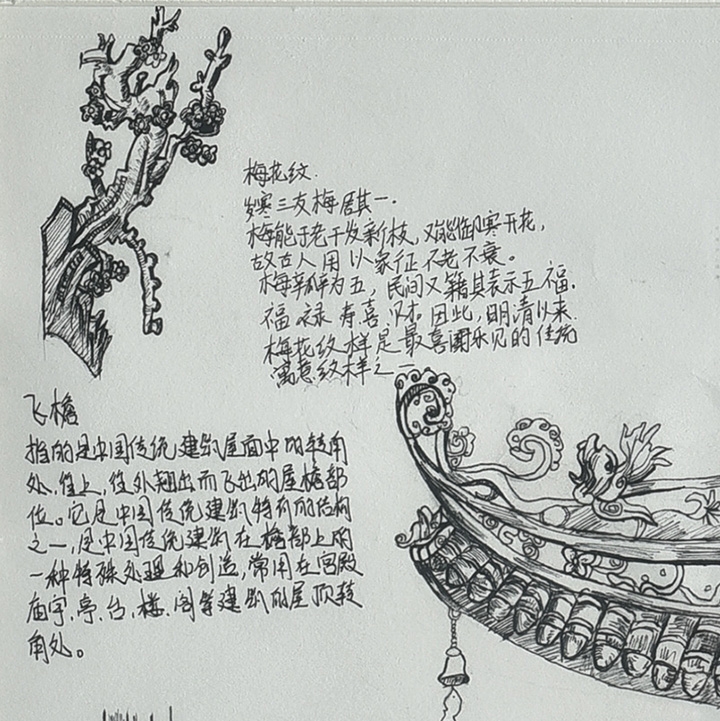 梅花纹.
岁寒三友梅居其一.
梅能于老干发新枝,又能御寒开花,
故古人用以象征不老不衰。
梅瓣为五,民间又籍其表示五福.
福禄寿喜财。因此,明清以来
梅花纹样是最喜闻乐见的传统
寓意纹样之一
飞檐
指的是中国传统建筑屋面中的转角
处,往上,往外翘出而飞起的屋檐部
位。它是中国传统建筑特有的结构
之一,是中国传统建筑在檐部上的
一种特殊处理和创造,常用在宫殿
庙宇、亭、台、楼、阁等建筑的屋顶转
角处。